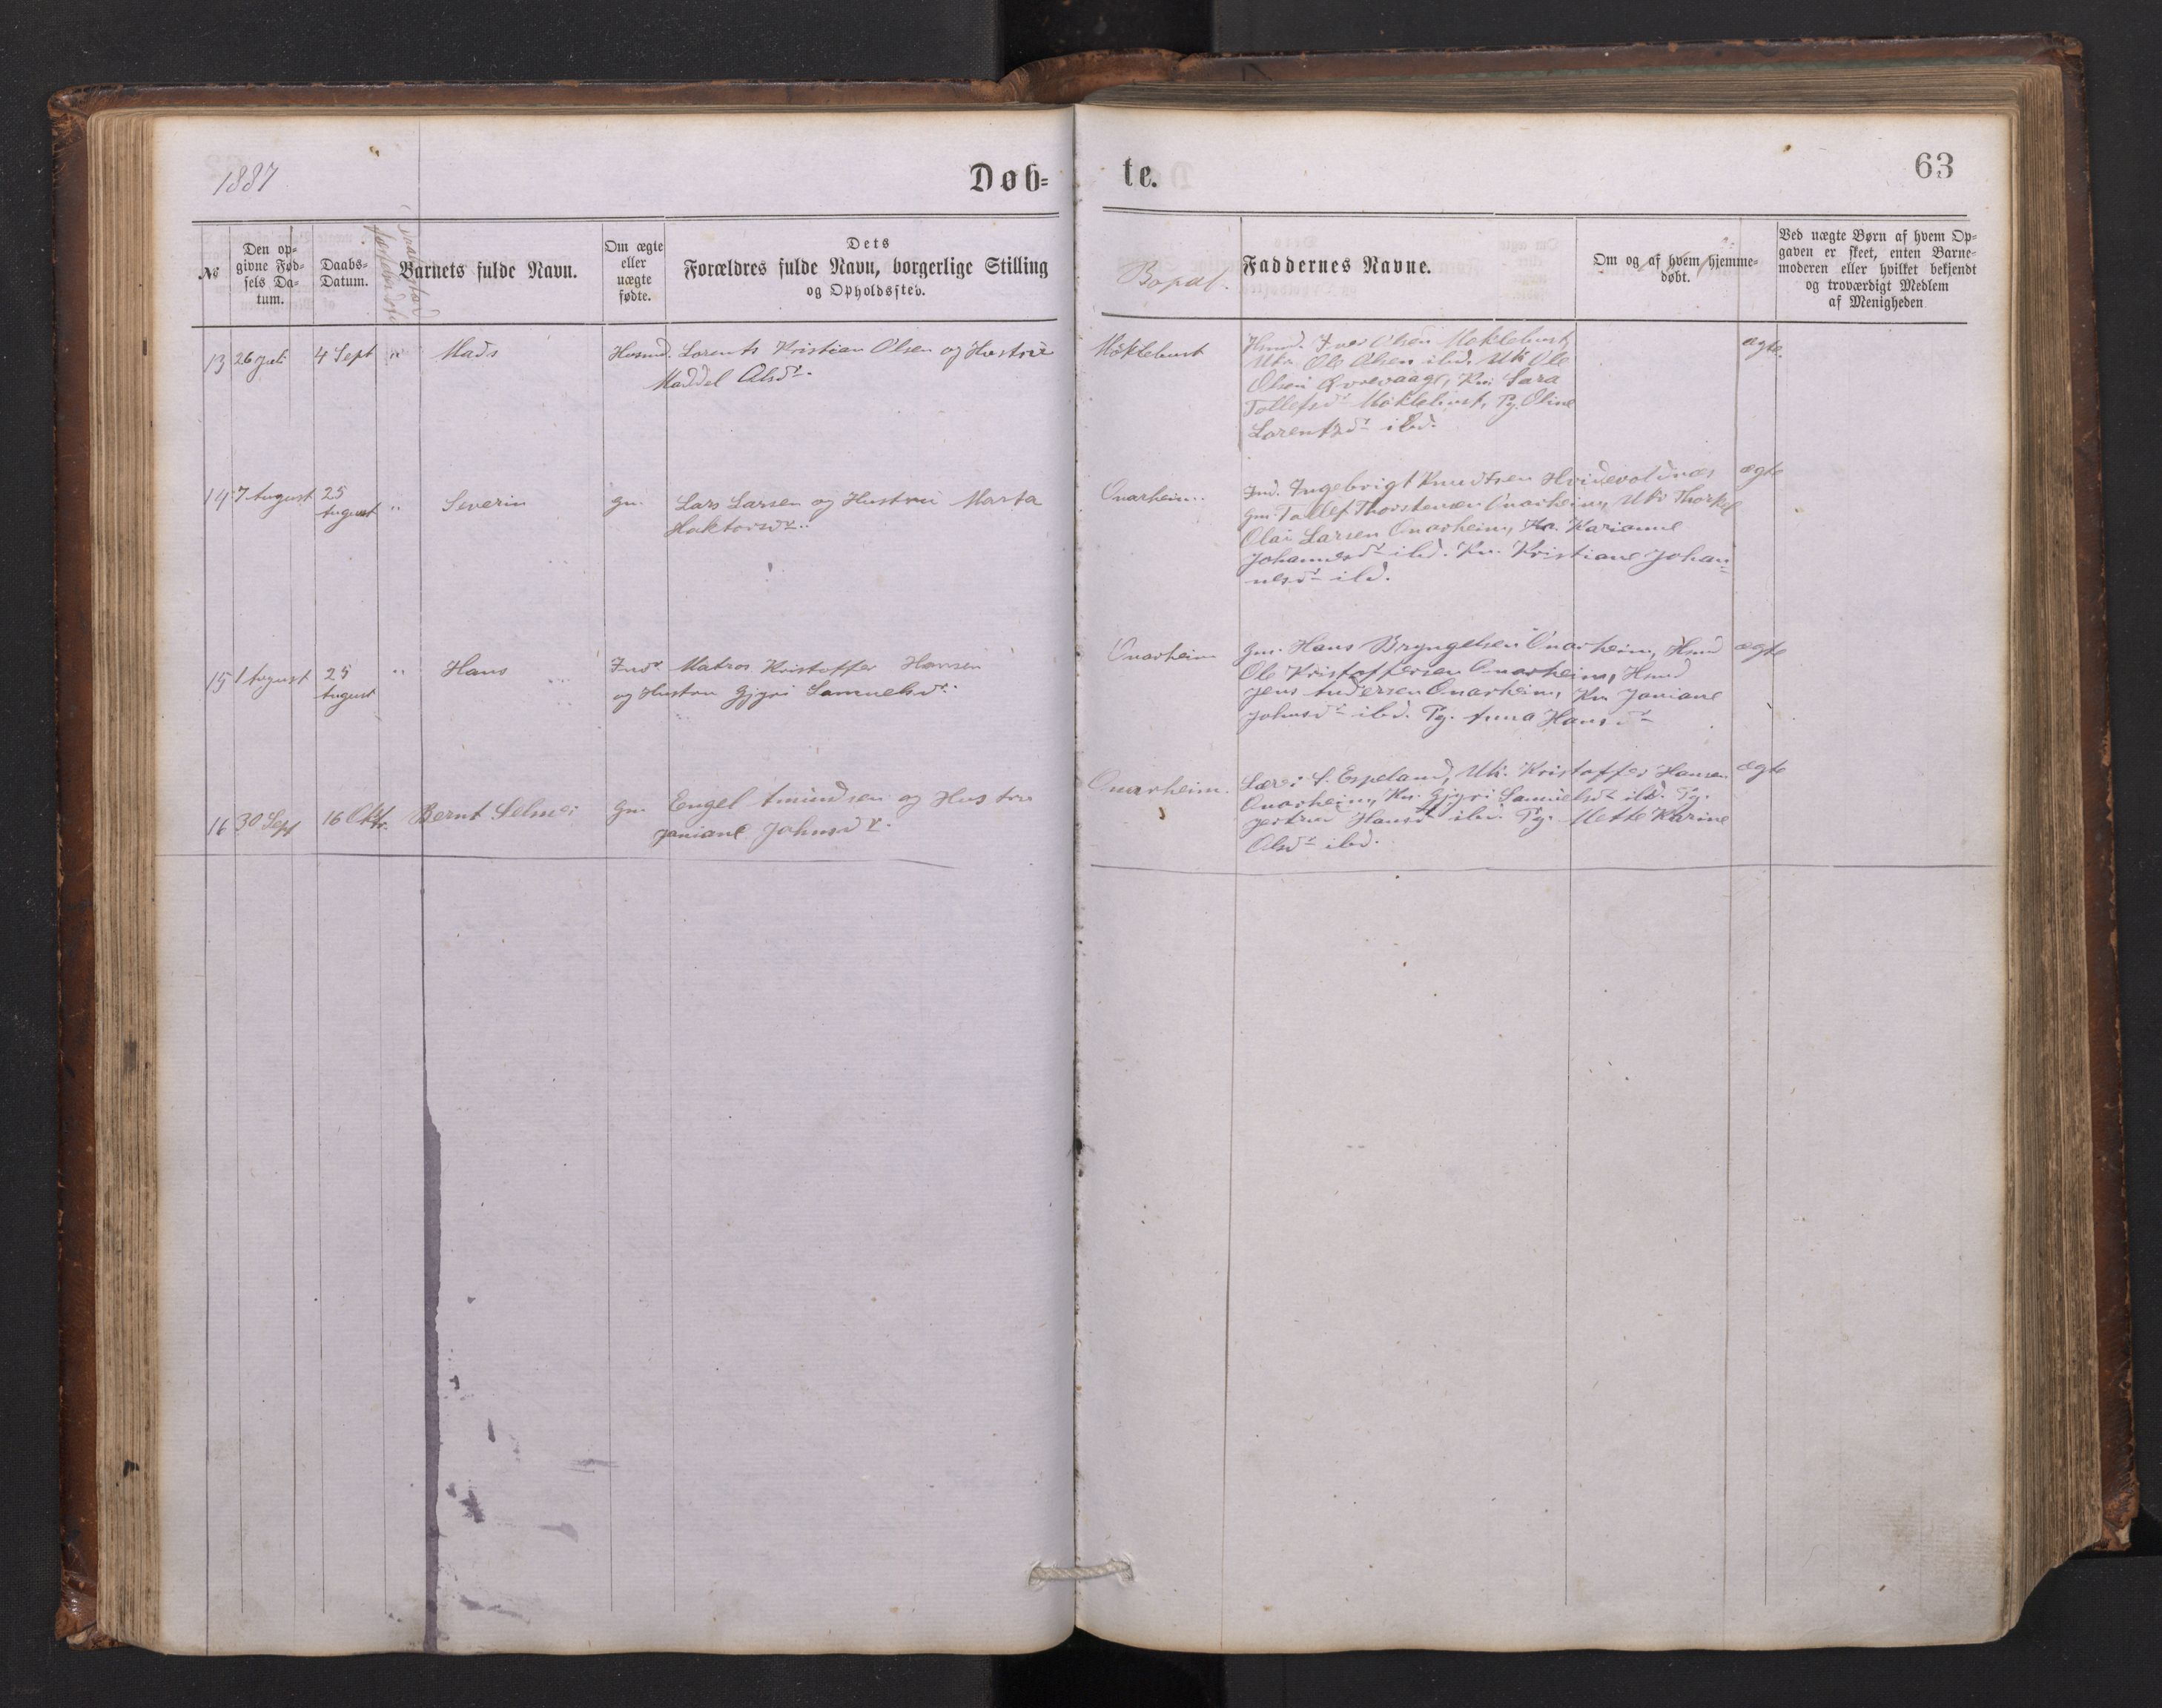 1887
Døb=
te.
63
No
Den op=
givne Fød=
sels Da=
tum.
Daabs=
Datum.
Barnets fulde Navn.
Om ægte
eller
uægte
fødte.
Dets
Forældres fulde Navn, borgerlige Stilling
og Opholdssted.
Bopæl.
Faddernes Navne.
Om og af hvem hjemme=
døbt.
Ved uægte Børn af hvem Op=
gaven er skeet, enten Barne=
moderen eller hvilket bekjendt
og troværdigt Medlem
af Menigheden.
13 26 Juli 4 Sept " Mads Husmd. Lorents Kristian Olsen og Hustru
Maddel Olsdr.
Møklebust
Husmd. Iver Olsen Møklebust,
Uk. Ole Olsen ibd. Uk Ole
Olsen, Kv. Sara
Tollefsdr Møklebust, Pg. Oline
Lorentsdr ibd.
ægte.
14 7 August 25
August " Severin gm. Lars Larsen og Hustru Marta
Haktorsdr.
Onarheim.
Ind. Ingebrigt Knudtsen
gm. Tollef Thorstensen Onarheim, Uk Thorkel
Olai Larsen Onarheim, Karianne
Johannesdr ibd. Kv. Kristiane Johan=
nesdr ibd.
ægte
15 1 August 25
August " Hans Indr Matros Kristoffer Hansen
og Hustru Gjyri Samuelsdr.
Onarheim
gm. Hans Bryngelsen Onarheim, Husmd
Ole Kristoffersen Onarheim, Husmd
Jens Andersen Onarheim, Kv Janiane
Johnsdr ibd. Pg. Anna Hansdr
ægte
16 30 Sept 16 Oktr. Bernt Selmer gm. Engel Amundsen og Hustru
Janiane Johnsdr.
Onarheim.
Lærer Espeland, Uk. Kristoffer Hansen
Onarheim, Kv. Gjyri Samuelsdr ibd. Pg.
Jertrud Hansdr ibd. Pg. Mette Karine
Olsdr ibd.
ægte